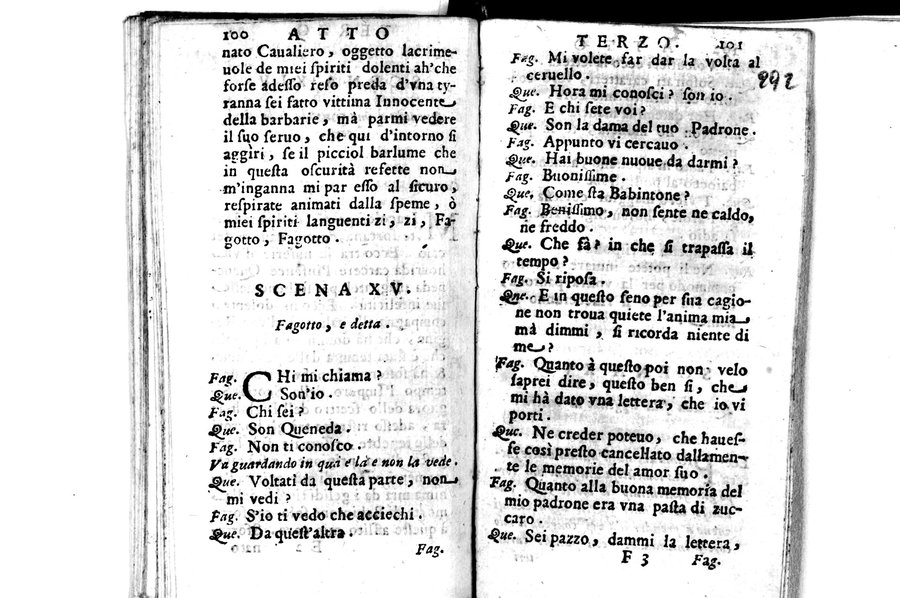 100 ATTO
nato Caualiero, oggetto lacrime-
uole de miei ſpiriti dolenti ah'che
forſe adeſſo reſo preda d'vna ty-
ranna ſei fatto vittima Innocente
della barbarie, mà parmi vedere
il ſuo ſeruo, che quì d'intorno ſi
aggiri, ſe il picciol barlume che
in queſta oſcurità reſette non
m'inganna mi par eſſo al ſicuro,
reſpirate animati dalla ſpeme, ò
miei ſpiriti languenti zi, zi, Fa-
gotto, Fagotto.
SCENA XV.
Fagotto, e detta.
Fag. CHi mi chiama?
Que. Son'io.
Fag. Chi ſei?
Que. Son Queneda.
Fag. Non ti conoſco.
Va guardando in quà e là e non la vede.
Que. Voltati da queſta parte, non
mi vedi?
Fag. S'io ti vedo che acciechi.
Que. Da queſt'altra.
Fag.
TERZO. 101
292
Fag. Mi volete far dar la volta al
ceruello.
Que. Hora mi conoſci? ſon io.
Fag. E chi ſete voi?
Que. Son la dama del tuo Padrone.
Fag. Appunto vi cercauo.
Que. Hai buone nuoue da darmi?
Fag. Buoniſſime.
Que. Come ſta Babintone?
Fag. Beniſſimo, non ſente ne caldo,
ne freddo.
Que. Che fà? in che ſi trapaſſa il
tempo?
Fag. Si ripoſa.
Que. E in queſto ſeno per ſua cagio-
ne non troua quiete l'anima mia
mà dimmi, ſi ricorda niente di
me?
Fag. Quanto à queſto poi non velo
ſaprei dire, queſto ben ſi, che
mi hà dato vna lettera, che io vi
porti.
Que. Ne creder poteuo, che haueſ-
ſe così preſto cancellato dallamen-
te le memorie del amor ſuo.
Fag. Quanto alla buona memoria del
mio padrone era vna paſta di zuc-
caro.
Que. Sei pazzo, dammi la lettera,
F 3 Fag.